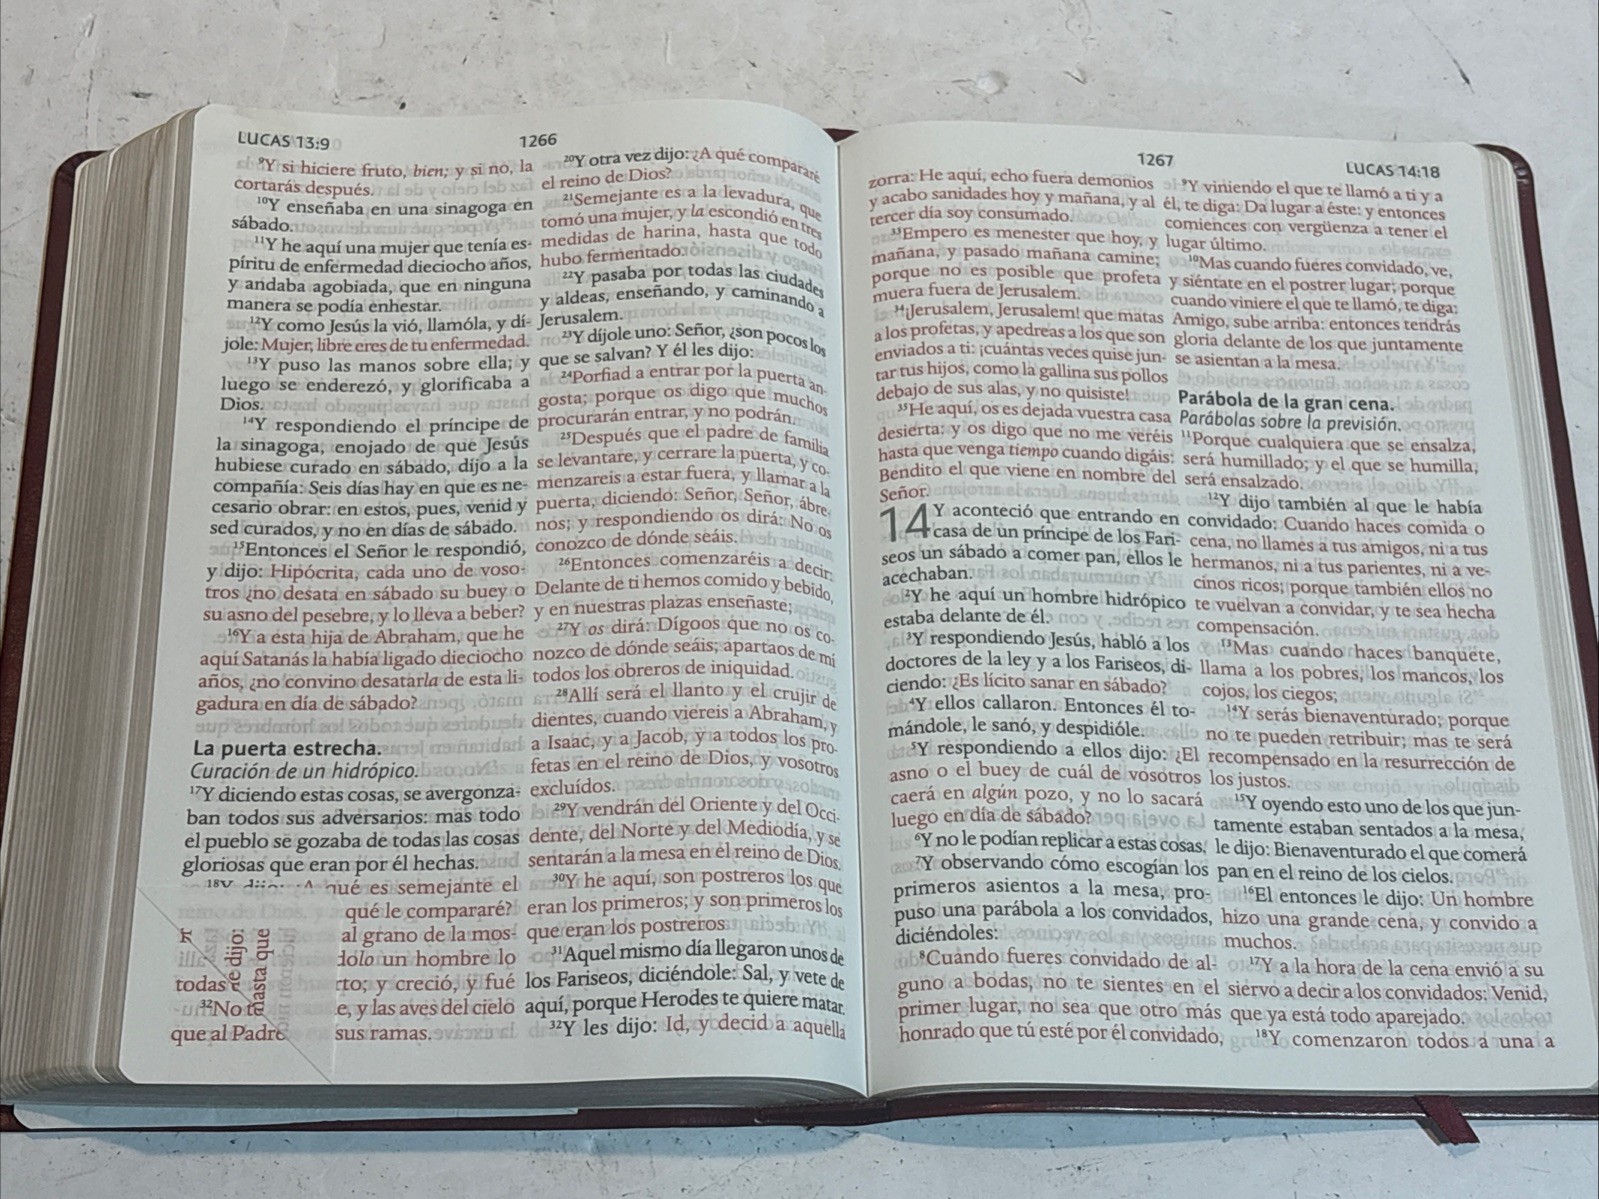 LUCAS 13:9
1266
⁹Y si hiciere fruto, bien; y si no, la
cortarás después.
¹⁰Y enseñaba en una sinagoga en
sábado.
¹¹Y he aquí una mujer que tenía es-
píritu de enfermedad dieciocho años,
y andaba agobiada, que en ninguna
manera se podía enhestar.
¹²Y como Jesús la vió, llamóla, y dí-
jole: Mujer, libre eres de tu enfermedad.
¹³Y puso las manos sobre ella; y
luego se enderezó, y glorificaba a
Dios.
¹⁴Y respondiendo el príncipe de
la sinagoga, enojado de que Jesús
hubiese curado en sábado, dijo a la
compañía: Seis días hay en que es ne-
cesario obrar: en estos, pues, venid y
sed curados, y no en días de sábado.
¹⁵Entonces el Señor le respondió,
y dijo: Hipócrita, cada uno de voso-
tros ¿no desata en sábado su buey o
su asno del pesebre, y lo lleva a beber?
¹⁶Y a esta hija de Abraham, que he
aquí Satanás la había ligado dieciocho
años, ¿no convino desatarla de esta li-
gadura en día de sábado?
La puerta estrecha.
Curación de un hidrópico.
¹⁷Y diciendo estas cosas, se avergonza-
ban todos sus adversarios: mas todo
el pueblo se gozaba de todas las cosas
gloriosas que eran por él hechas.
¹⁸Y dijo: ¿A qué es semejante el
qué le compararé?
al grano de la mos-
dolo un hombre lo
rto; y creció, y fué
e, y las aves del cielo
sus ramas.
todas
³²No
que al Padre
re dijo:
hasta que
²⁰Y otra vez dijo: ¿A qué compararé
el reino de Dios?
²¹Semejante es a la levadura, que
tomó una mujer, y la escondió en tres
medidas de harina, hasta que todo
hubo fermentado.
²²Y pasaba por todas las ciudades
y aldeas, enseñando, y caminando a
Jerusalem.
²³Y díjole uno: Señor, ¿son pocos los
que se salvan? Y él les dijo:
²⁴Porfiad a entrar por la puerta an-
gosta; porque os digo que muchos
procurarán entrar, y no podrán.
²⁵Después que el padre de familia
se levantare, y cerrare la puerta, y co-
menzareis a estar fuera, y llamar a la
puerta, diciendo: Señor, Señor, ábre-
nos; y respondiendo os dirá: No os
conozco de dónde seáis.
²⁶Entonces comenzaréis a decir:
Delante de ti hemos comido y bebido,
y en nuestras plazas enseñaste;
²⁷Y os dirá: Dígoos que no os co-
nozco de dónde seáis; apartaos de mí
todos los obreros de iniquidad.
²⁸Allí será el llanto y el crujir de
dientes, cuando viereis a Abraham, y
a Isaac, y a Jacob, y a todos los pro-
fetas en el reino de Dios, y vosotros
excluídos.
²⁹Y vendrán del Oriente y del Occi-
dente, del Norte y del Mediodía, y se
sentarán a la mesa en el reino de Dios.
³⁰Y he aquí, son postreros los que
eran los primeros; y son primeros los
que eran los postreros
³¹Aquel mismo día llegaron unos de
los Fariseos, diciéndole: Sal, y vete de
aquí, porque Herodes te quiere matar.
³²Y les dijo: Id, y decid a aquella
1267
LUCAS 14:18
zorra: He aquí, echo fuera demonios
y acabo sanidades hoy y mañana, y al
tercer día soy consumado.
³³Empero es menester que hoy, y
mañana, y pasado mañana camine;
porque no es posible que profeta
muera fuera de Jerusalem.
³⁴¡Jerusalem, Jerusalem! que matas
a los profetas, y apedreas a los que son
enviados a ti: ¡cuántas veces quise jun-
tar tus hijos, como la gallina sus pollos
debajo de sus alas, y no quisiste!
³⁵He aquí, os es dejada vuestra casa
desierta: y os digo que no me veréis
hasta que venga tiempo cuando digáis:
Bendito el que viene en nombre del
Señor.
14 Y aconteció que entrando en
casa de un príncipe de los Fari-
seos un sábado a comer pan, ellos le
acechaban.
²Y he aquí un hombre hidrópico
estaba delante de él.
³Y respondiendo Jesús, habló a los
doctores de la ley y a los Fariseos, di-
ciendo: ¿Es lícito sanar en sábado?
⁴Y ellos callaron. Entonces él to-
mándole, le sanó, y despidióle.
⁵Y respondiendo a ellos dijo: ¿El
asno o el buey de cuál de vosotros
caerá en algún pozo, y no lo sacará
luego en día de sábado?
⁶Y no le podían replicar a estas cosas.
⁷Y observando cómo escogían los
primeros asientos a la mesa, pro-
puso una parábola a los convidados,
diciéndoles:
⁸Cuando fueres convidado de al-
guno a bodas, no te sientes en el
primer lugar, no sea que otro más
honrado que tú esté por él convidado,
⁹Y viniendo el que te llamó a ti y a
él, te diga: Da lugar a éste: y entonces
comiences con vergüenza a tener el
lugar último.
¹⁰Mas cuando fueres convidado, ve,
y siéntate en el postrer lugar; porque
cuando viniere el que te llamó, te diga:
Amigo, sube arriba: entonces tendrás
gloria delante de los que juntamente
se asientan a la mesa.
Parábola de la gran cena.
Parábolas sobre la previsión.
¹¹Porque cualquiera que se ensalza,
será humillado; y el que se humilla,
será ensalzado.
¹²Y dijo también al que le había
convidado: Cuando haces comida o
cena, no llames a tus amigos, ni a tus
hermanos, ni a tus parientes, ni a ve-
cinos ricos; porque también ellos no
te vuelvan a convidar, y te sea hecha
compensación.
¹³Mas cuando haces banquete,
llama a los pobres, los mancos, los
cojos, los ciegos;
¹⁴Y serás bienaventurado; porque
no te pueden retribuir; mas te será
recompensado en la resurrección de
los justos.
¹⁵Y oyendo esto uno de los que jun-
tamente estaban sentados a la mesa,
le dijo: Bienaventurado el que comerá
pan en el reino de los cielos.
¹⁶El entonces le dijo: Un hombre
hizo una grande cena, y convido a
muchos.
¹⁷Y a la hora de la cena envió a su
siervo a decir a los convidados: Venid,
que ya está todo aparejado.
¹⁸Y comenzaron todos a una a